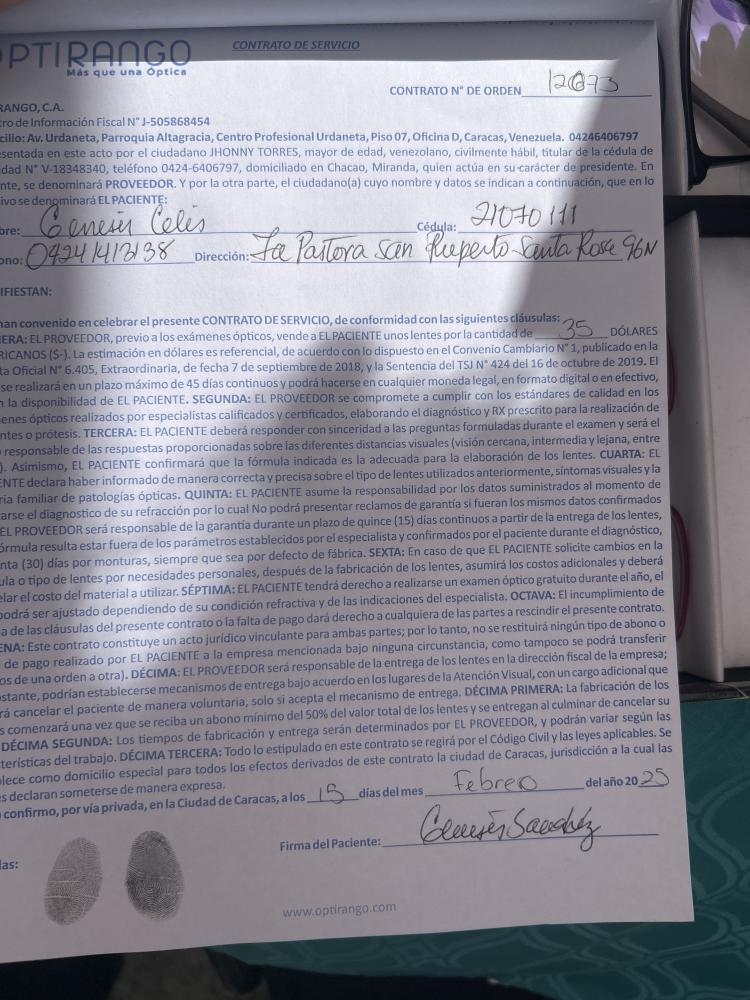 OPTIRANGO
Más que una Óptica
CONTRATO DE SERVICIO
CONTRATO N° DE ORDEN 12673
RANGO, C.A.
tro de Información Fiscal N° J-505868454
cilio: Av. Urdaneta, Parroquia Altagracia, Centro Profesional Urdaneta, Piso 07, Oficina D, Caracas, Venezuela. 04246406797
esentada en este acto por el ciudadano JHONNY TORRES, mayor de edad, venezolano, civilmente hábil, titular de la cédula de
dad N° V-18348340, teléfono 0424-6406797, domiciliado en Chacao, Miranda, quien actúa en su carácter de presidente. En
nte, se denominará PROVEEDOR. Y por la otra parte, el ciudadano(a) cuyo nombre y datos se indican a continuación, que en lo
ivo se denominará EL PACIENTE:
bre: Genesis Celis Cédula: 21070111
ono: 04241413138 Dirección: La Pastora San Ruperto Santa Rosa 96N
IFIESTAN:
han convenido en celebrar el presente CONTRATO DE SERVICIO, de conformidad con las siguientes cláusulas:
ERA: EL PROVEEDOR, previo a los exámenes ópticos, vende a EL PACIENTE unos lentes por la cantidad de 35 DÓLARES
RICANOS ($-). La estimación en dólares es referencial, de acuerdo con lo dispuesto en el Convenio Cambiario N° 1, publicado en la
ta Oficial N° 6.405, Extraordinaria, de fecha 7 de septiembre de 2018, y la Sentencia del TSJ N° 424 del 16 de octubre de 2019. El
se realizará en un plazo máximo de 45 días continuos y podrá hacerse en cualquier moneda legal, en formato digital o en efectivo,
n la disponibilidad de EL PACIENTE. SEGUNDA: EL PROVEEDOR se compromete a cumplir con los estándares de calidad en los
enes ópticos realizados por especialistas calificados y certificados, elaborando el diagnóstico y RX prescrito para la realización de
ntes o prótesis. TERCERA: EL PACIENTE deberá responder con sinceridad a las preguntas formuladas durante el examen y será el
responsable de las respuestas proporcionadas sobre las diferentes distancias visuales (visión cercana, intermedia y lejana, entre
). Asimismo, EL PACIENTE confirmará que la fórmula indicada es la adecuada para la elaboración de los lentes. CUARTA: EL
ENTE declara haber informado de manera correcta y precisa sobre el tipo de lentes utilizados anteriormente, síntomas visuales y la
ria familiar de patologías ópticas. QUINTA: EL PACIENTE asume la responsabilidad por los datos suministrados al momento de
arse el diagnostico de su refracción por lo cual No podrá presentar reclamos de garantía si fueran los mismos datos confirmados
EL PROVEEDOR será responsable de la garantía durante un plazo de quince (15) días continuos a partir de la entrega de los lentes,
órmula resulta estar fuera de los parámetros establecidos por el especialista y confirmados por el paciente durante el diagnóstico,
nta (30) días por monturas, siempre que sea por defecto de fábrica. SEXTA: En caso de que EL PACIENTE solicite cambios en la
ula o tipo de lentes por necesidades personales, después de la fabricación de los lentes, asumirá los costos adicionales y deberá
elar el costo del material a utilizar. SÉPTIMA: EL PACIENTE tendrá derecho a realizarse un examen óptico gratuito durante el año, el
podrá ser ajustado dependiendo de su condición refractiva y de las indicaciones del especialista. OCTAVA: El incumplimiento de
a de las cláusulas del presente contrato o la falta de pago dará derecho a cualquiera de las partes a rescindir el presente contrato.
ENA: Este contrato constituye un acto jurídico vinculante para ambas partes; por lo tanto, no se restituirá ningún tipo de abono o
de pago realizado por EL PACIENTE a la empresa mencionada bajo ninguna circunstancia, como tampoco se podrá transferir
os de una orden a otra). DÉCIMA: EL PROVEEDOR será responsable de la entrega de los lentes en la dirección fiscal de la empresa;
ostante, podrían establecerse mecanismos de entrega bajo acuerdo en los lugares de la Atención Visual, con un cargo adicional que
rá cancelar el paciente de manera voluntaria, solo si acepta el mecanismo de entrega. DÉCIMA PRIMERA: La fabricación de los
s comenzará una vez que se reciba un abono mínimo del 50% del valor total de los lentes y se entregan al culminar de cancelar su
DÉCIMA SEGUNDA: Los tiempos de fabricación y entrega serán determinados por EL PROVEEDOR, y podrán variar según las
cterísticas del trabajo. DÉCIMA TERCERA: Todo lo estipulado en este contrato se regirá por el Código Civil y las leyes aplicables. Se
lece como domicilio especial para todos los efectos derivados de este contrato la ciudad de Caracas, jurisdicción a la cual las
es declaran someterse de manera expresa.
o confirmo, por vía privada, en la Ciudad de Caracas, a los 15 días del mes Febrero del año 2025
Firma del Paciente: Genesis Sanchez
las:
www.optirango.com